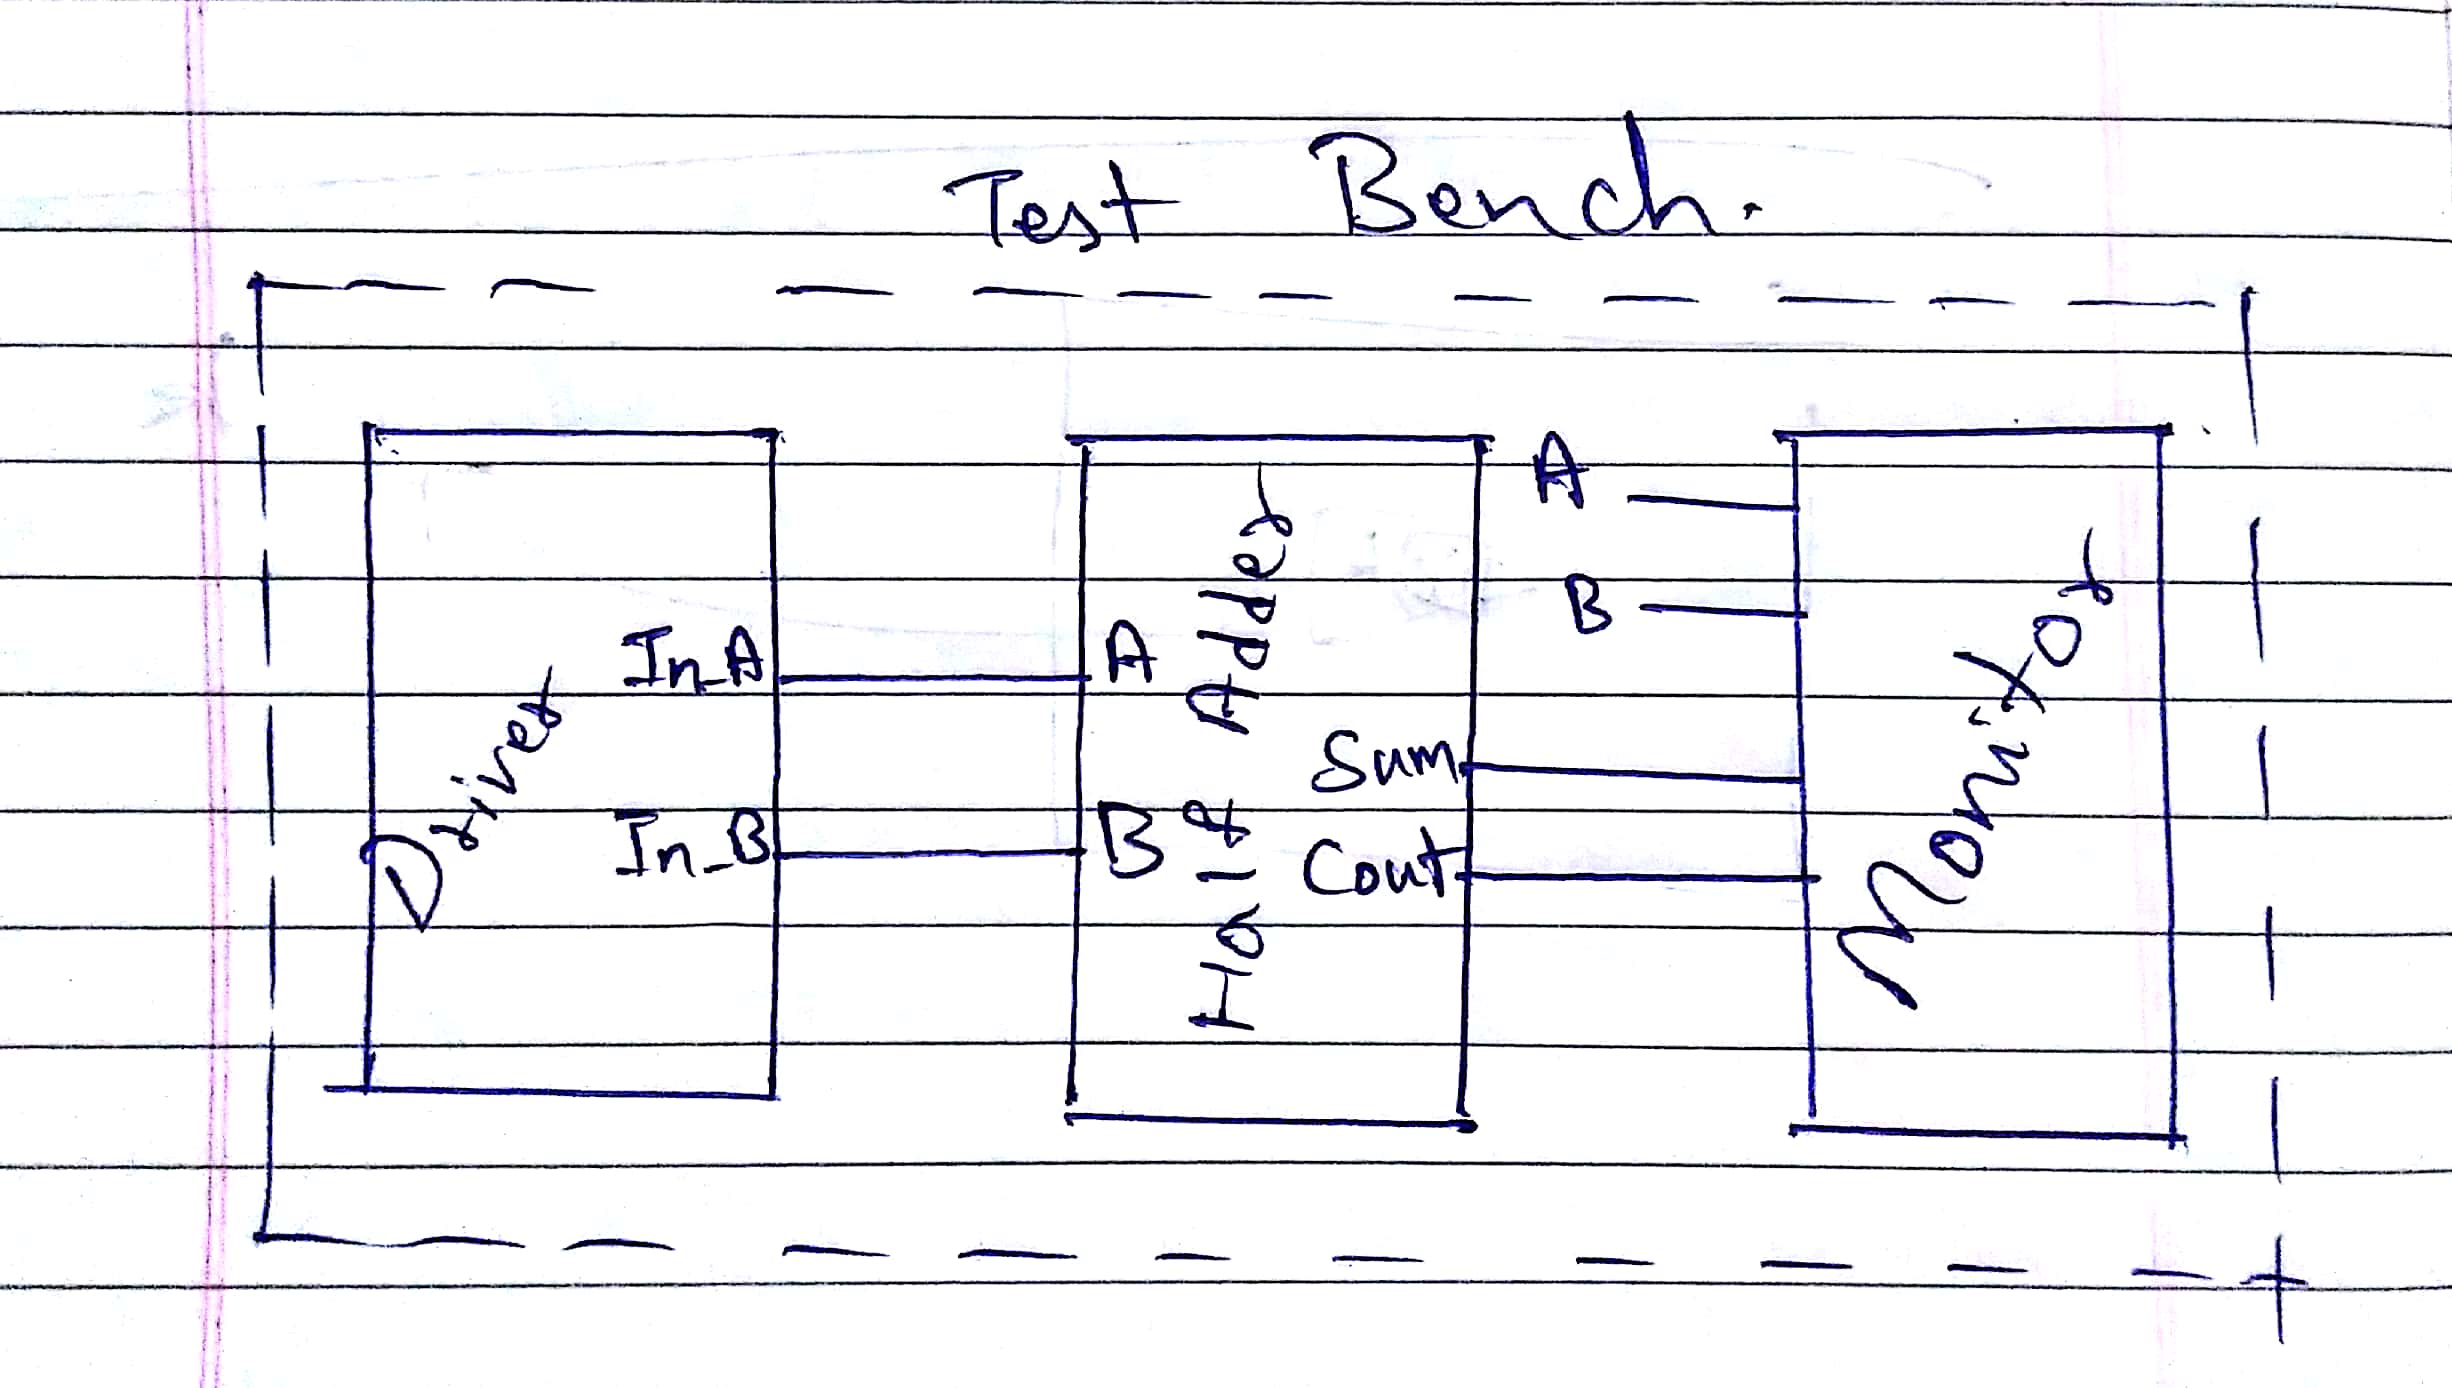 Test Bench.
Driver
In_A
In_B
A
B
Half Adder
Sum
Cout
A
B
Monitor